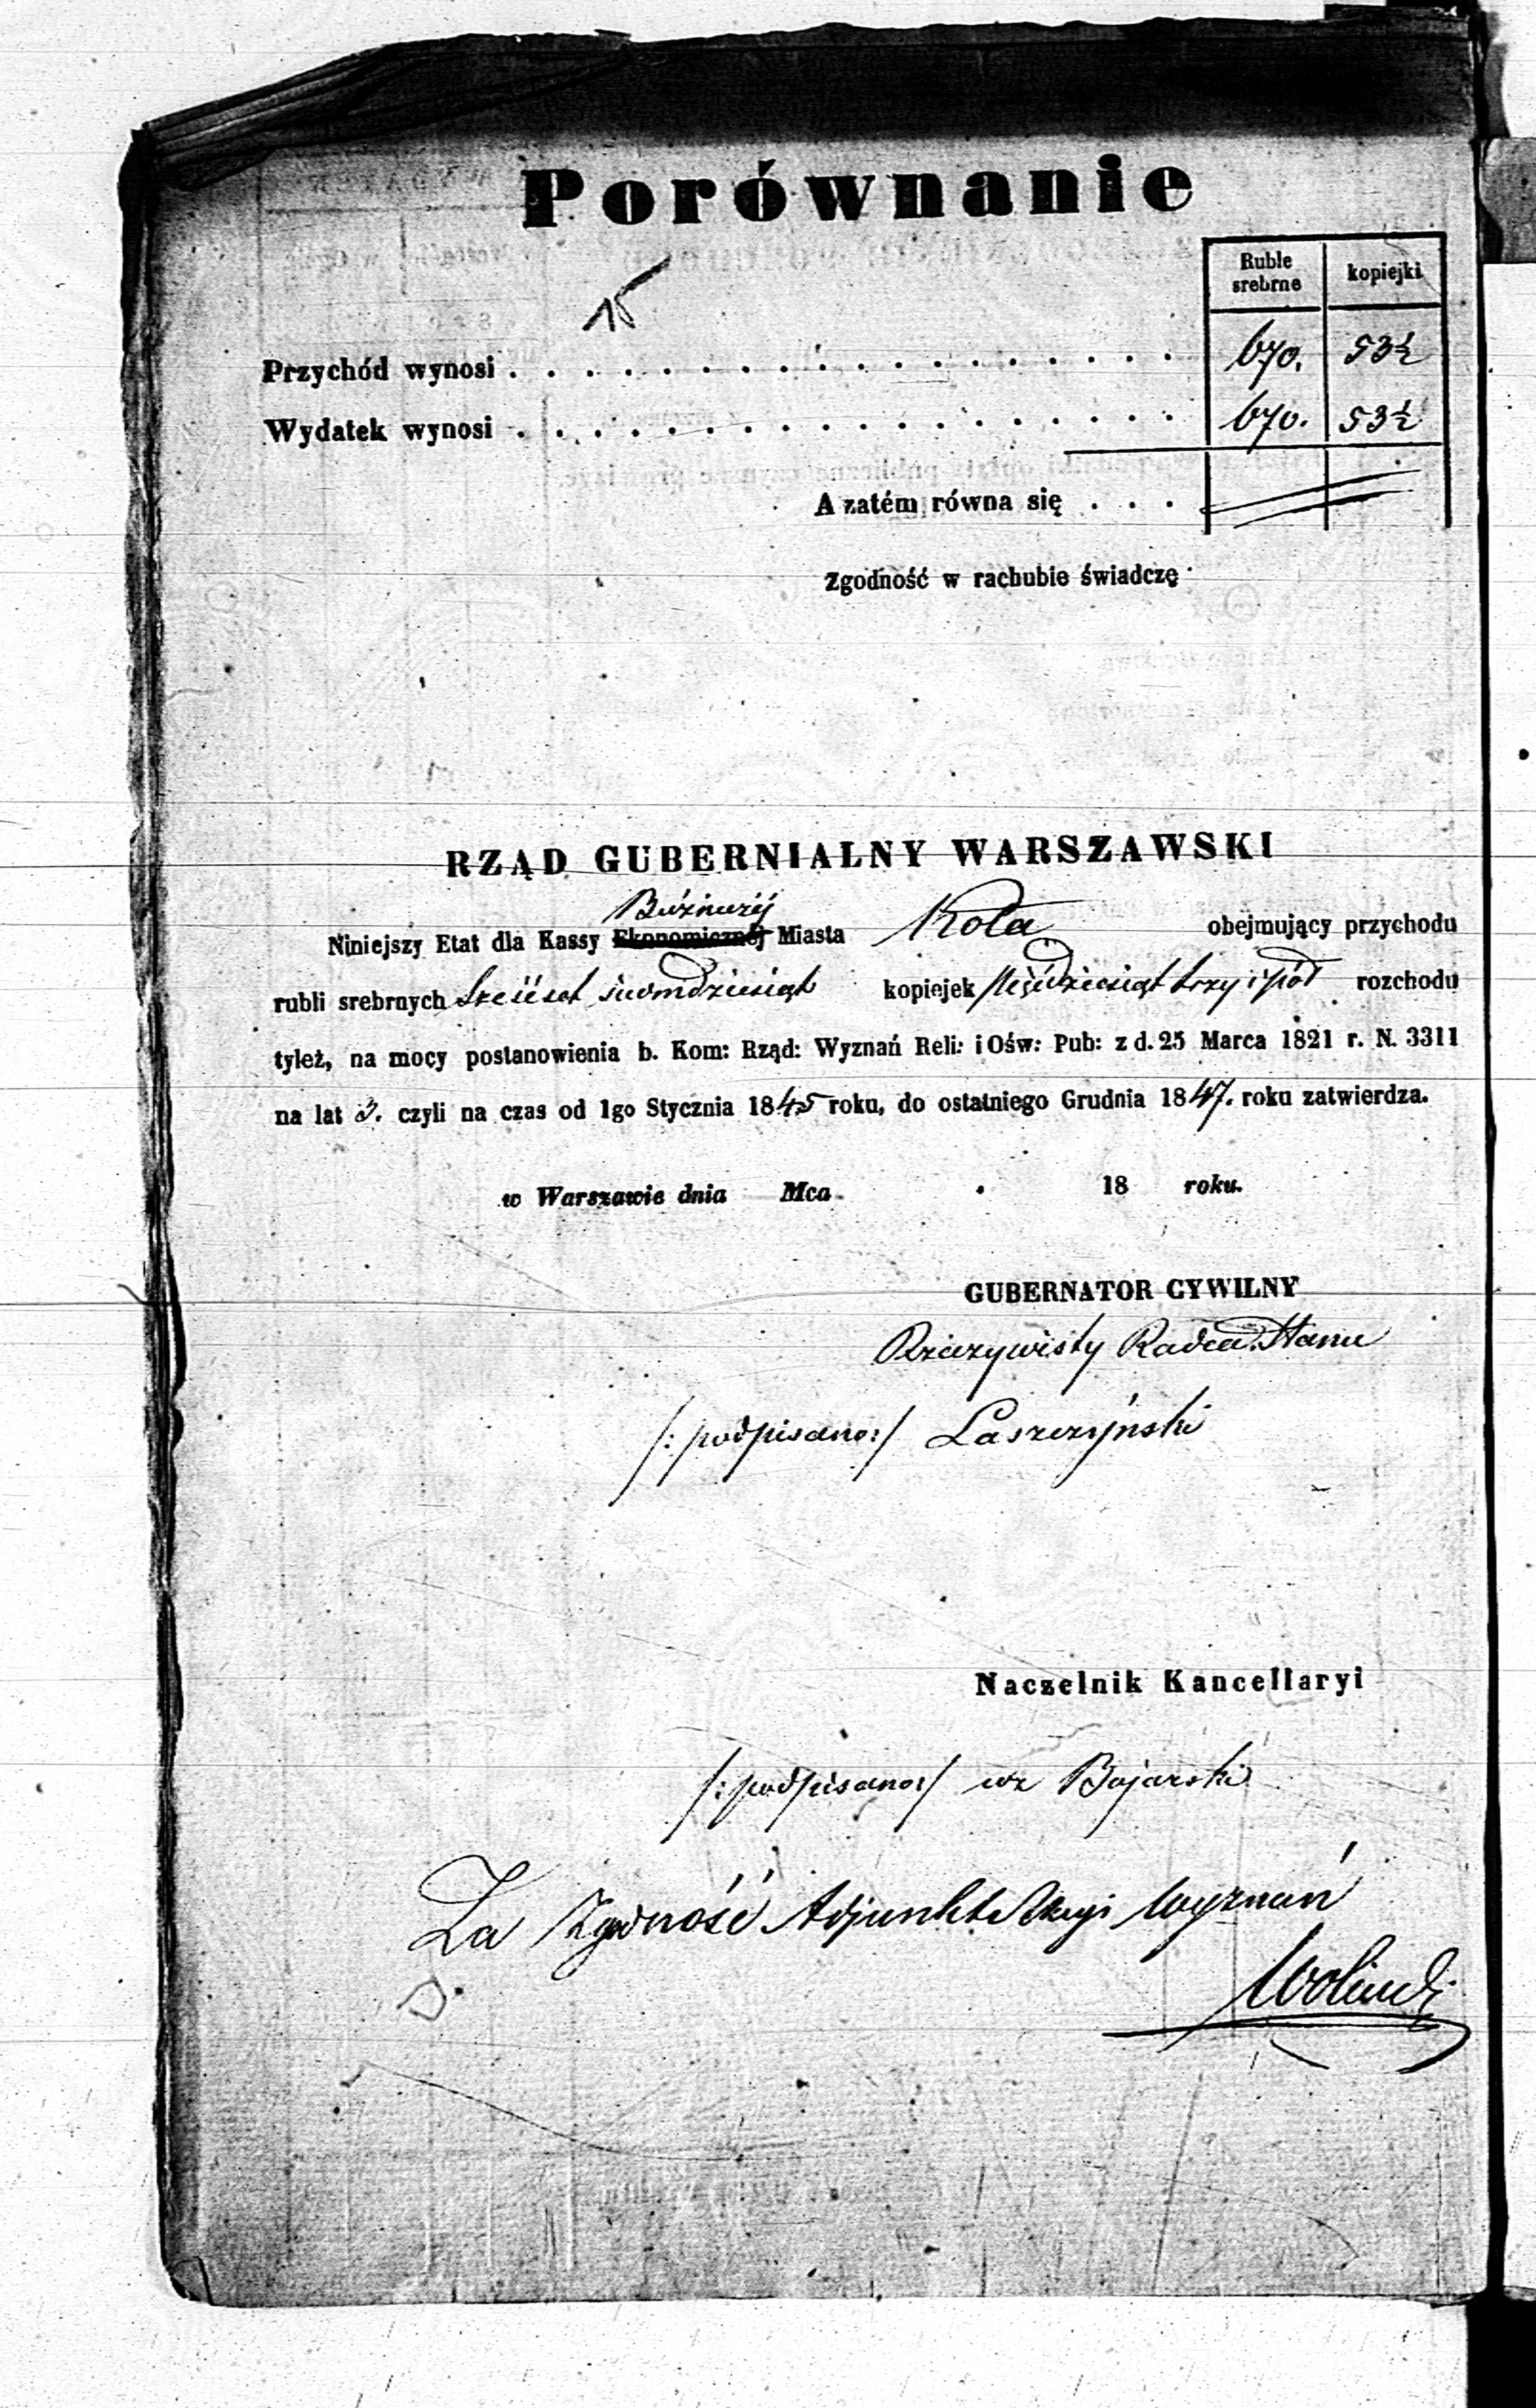 Porównanie
Ruble srebrne kopiejki
15
Przychód wynosi . . . . . . . . . . . . . . . . . . 670. 53½
Wydatek wynosi . . . . . . . . . . . . . . . . . . 670. 53½
A zatém równa się . . .
Zgodność w rachubie świadczę
RZĄD GUBERNIALNY WARSZAWSKI
Bóżniczéj
Niniejszy Etat dla Kassy Ekonomicznéj Miasta Koła obejmujący przychodu
rubli srebrnych sześćset siedmdziesiąt kopiejek pięćdziesiąt trzy i pół rozchodu
tyleż, na mocy postanowienia b. Kom: Rząd: Wyznań Reli: i Ośw: Pub: z d. 25 Marca 1821 r. N. 3311
na lat 3. czyli na czas od 1go Stycznia 1845 roku, do ostatniego Grudnia 1847. roku zatwierdza.
w Warszawie dnia Mca 18 roku.
GUBERNATOR CYWILNY
Rzeczywisty Radca Stanu
/: podpisano:/ Łaszczyński
Naczelnik Kancellaryi
/: podpisano:/ wz Bojarski
Za Zgodność Adjunkt Wyznań